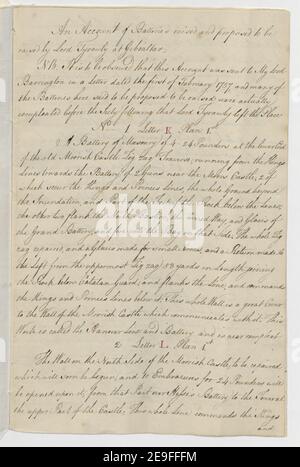 An Account of Batteries raised and proposed to be
raised by Lord Tyrawly at Gibraltar.
NB. It is to be observed that this Account was sent to My Lord
Barrington in a letter dated the first of February 1757 and many of
the Batteries here said to be proposed to be raised were actually
compleated before the July following that Lord Tyrawly left the Place
No. 1 Letter K Plan 1st
A Battery of Masonry of 4 24 Pounders at the
of the old Moorish Castle, Zig Zag Traverse, running from the Kings
Lines towards the Battery of 2 Guns near the Moors Castle, 2 of
which scour the Kings and Princes Lines, the whole Ground beyond
the Inundation, and Part of the Foot of the Rock below the Lines,
the other two flank the Covered Way and Glacis of
the Grand Battery, and fire into the Bay on that Side. The whole Zig
zag repaired and a Glacis made for small Arms, and a Return made to
the Left from the uppermost Zig zag 83 yards in Length joining
the Rock below Catalan Guard, and flanks the Line, and commands
the Kings and Princes Lines below it. This whole Wall is a great Cover
to the Wall of the Moorish Castle which communicates with it. This
Work is called by Hanover Line and Battery and is near compleat
2 Letter L. Plan 1st
The Wall on the North Side of the Moorish Castle, to be repaired,
which will soon be begun, and 10 Embrasures for 24 Pounders will
be opened upon it, from that Part near Hesse's Battery to the Funeral
the upper Part of the Castle. This whole Line commands the Kings
and